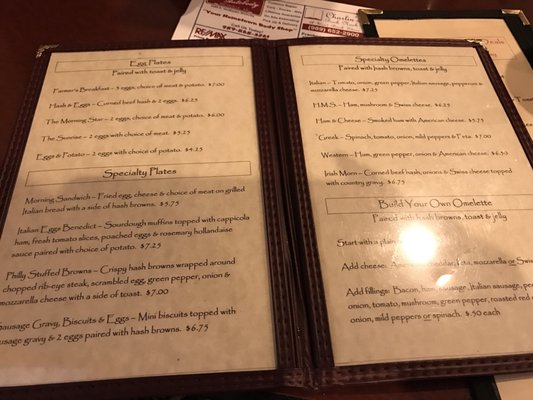 Your Hometown Body Shop
RE/MAX
(989) 652-2900
Egg Plates
Paired with toast & jelly
Farmer's Breakfast – 3 eggs, choice of meat & potato. $7.00
Hash & Eggs – Corned beef hash & 2 eggs. $6.25
The Morning Star – 2 eggs, choice of meat & potato. $6.00
The Sunrise – 2 eggs with choice of meat. $5.25
Eggs & Potato – 2 eggs with choice of potato. $4.25
Specialty Plates
Morning Sandwich – Fried egg, cheese & choice of meat on grilled
Italian bread with a side of hash browns. $5.75
Italian Eggs Benedict – Sourdough muffins topped with cappicola
ham, fresh tomato slices, poached eggs & rosemary hollandaise
sauce paired with choice of potato. $7.25
Philly Stuffed Browns – Crispy hash browns wrapped around
chopped rib-eye steak, scrambled egg, green pepper, onion &
mozzarella cheese with a side of toast. $7.00
Sausage Gravy, Biscuits & Eggs – Mini biscuits topped with
sausage gravy & 2 eggs paired with hash browns. $6.75
Specialty Omelettes
Paired with hash browns, toast & jelly
Italian – Tomato, onion, green pepper, Italian sausage, pepperoni &
mozzarella cheese. $7.25
H.M.S. – Ham, mushroom & Swiss cheese. $6.25
Ham & Cheese – Smoked ham with American cheese. $5.75
Greek – Spinach, tomato, onion, mild peppers & Feta. $7.00
Western – Ham, green pepper, onion & American cheese. $6.50
Irish Morn – Corned beef hash, onions & Swiss cheese topped
with country gravy. $6.75
Build Your Own Omelette
Paired with hash browns, toast & jelly
Start with a plain
Add cheese: feta, mozzarella or Swis
Add fillings: Bacon, ham, sausage, Italian sausage, pe
onion, tomato, mushroom, green pepper, roasted red
onion, mild peppers or spinach. $.50 each